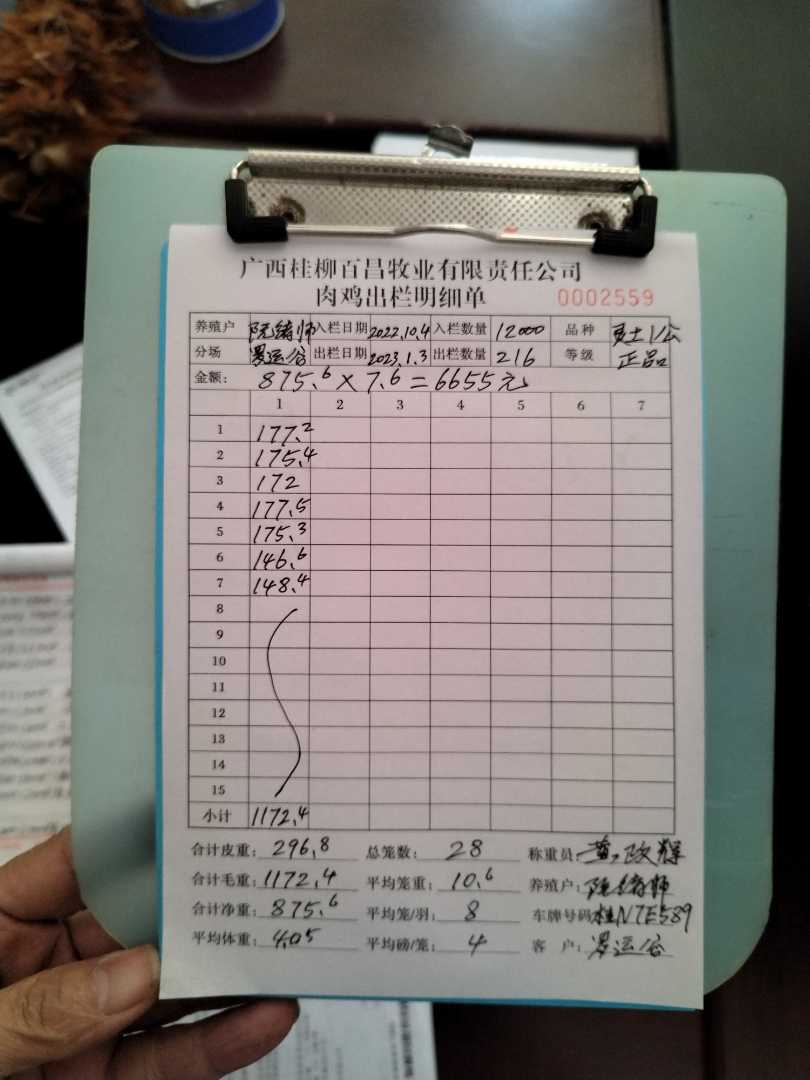 广西桂柳百昌牧业有限责任公司
肉鸡出栏明细单 0002559
养殖户 阮绪师 入栏日期 2022.10.4 入栏数量 12000 品种 土1公
分场 罗运谷 出栏日期 2023.1.3 出栏数量 216 等级 正品
金额: 875.6 × 7.6 = 6655元
1 2 3 4 5 6 7
1 177.2
2 175.4
3 172
4 177.5
5 175.3
6 146.6
7 148.4
8
9
10
11
12
13
14
15
小计 1172.4
合计皮重: 296.8 总笼数: 28 称重员: 黄政辉
合计毛重: 1172.4 平均笼重: 10.6 养殖户: 阮绪师
合计净重: 875.6 平均笼/羽: 8 车牌号码: 桂N7E589
平均体重: 4.05 平均磅/笼: 4 客户: 罗运谷